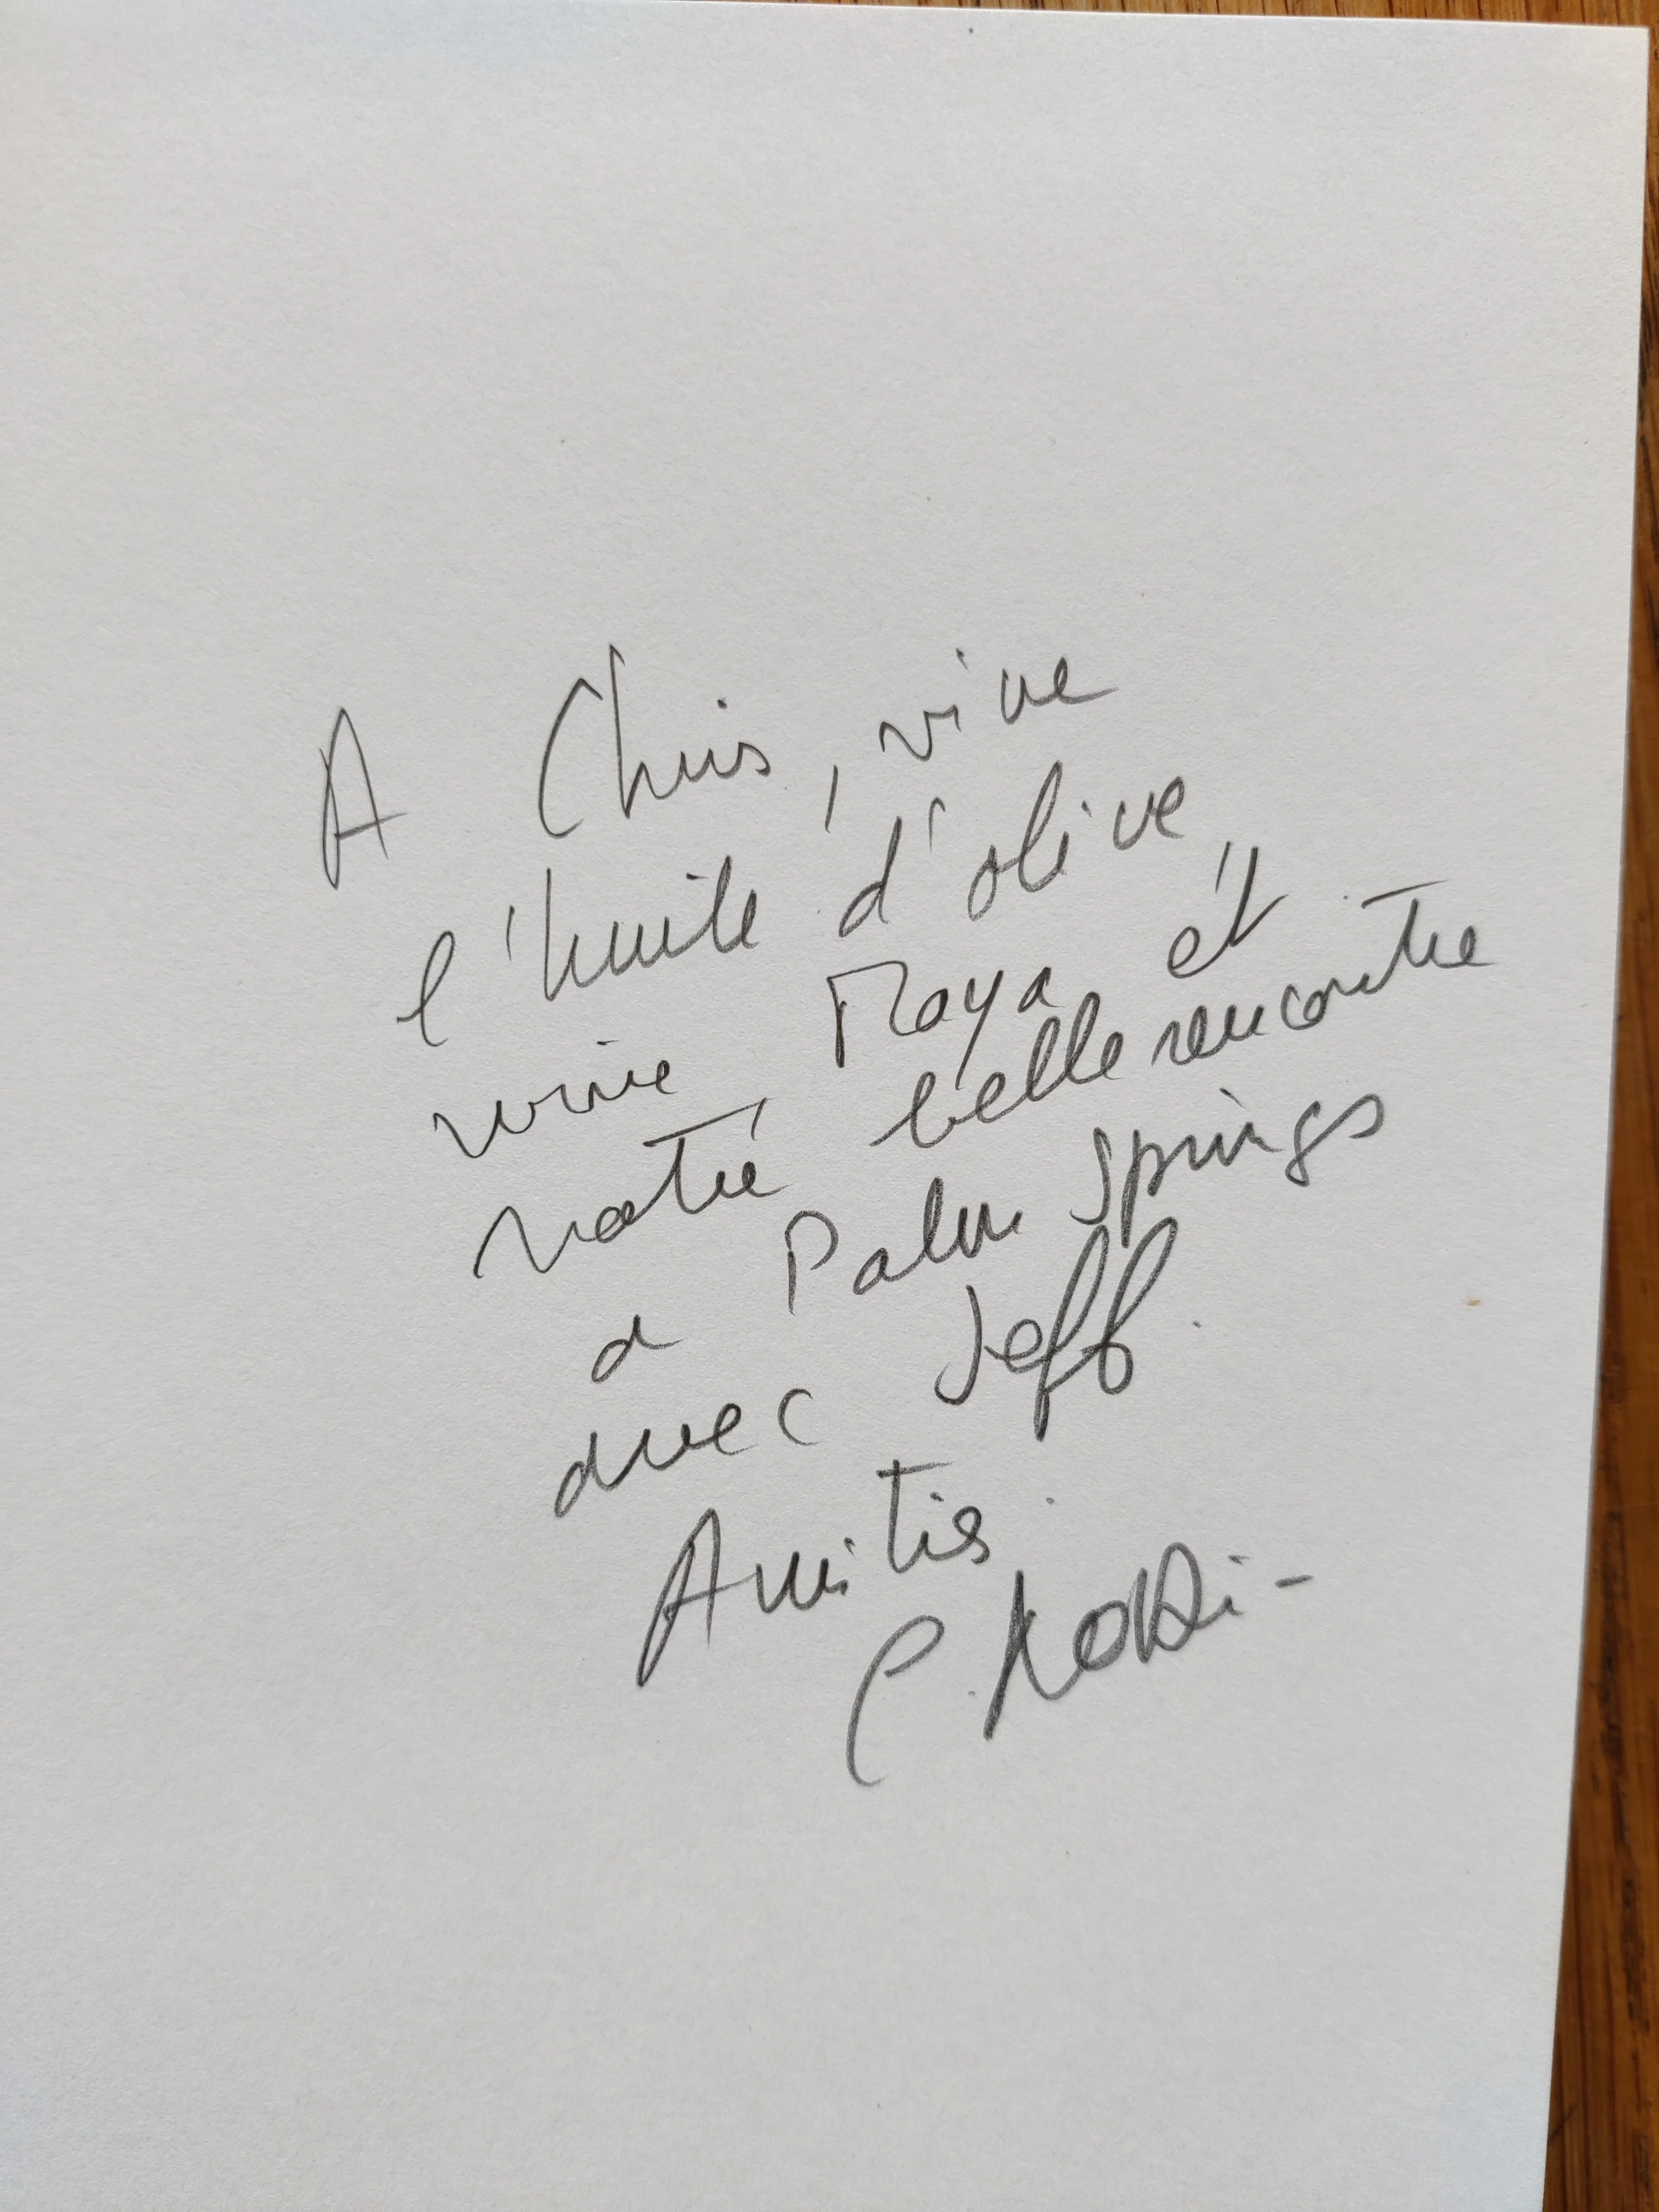 A Chris, vive
l'huile d'olive
vive Maya et
notre belle rencontre
a Palm Springs
avec Jeff.
Amitiés.
C.